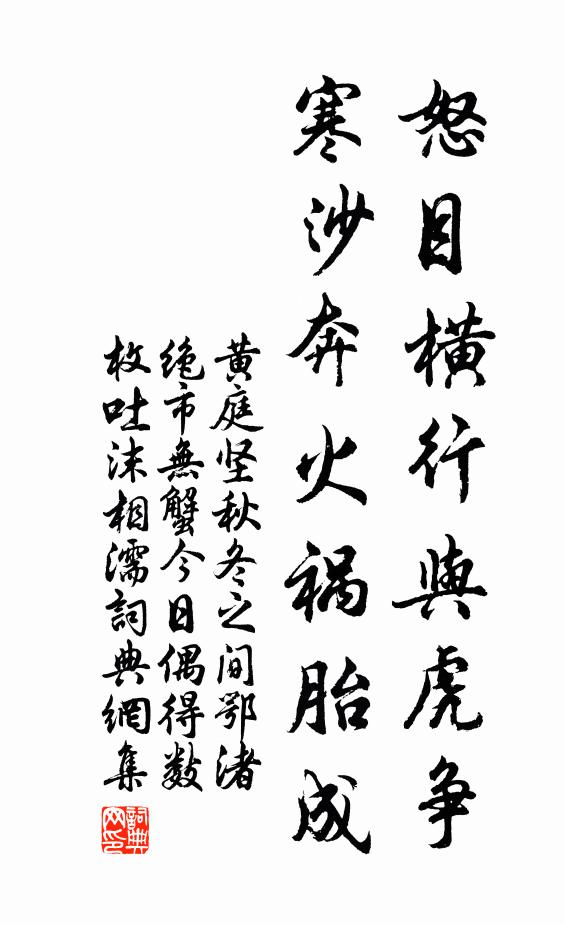 怒目横行與虎争
寒沙奔火祸胎成
黄庭坚秋冬之间鄂渚
绝市無蟹今日偶得数
枚吐沫相濡詞典網集
詞典
网印